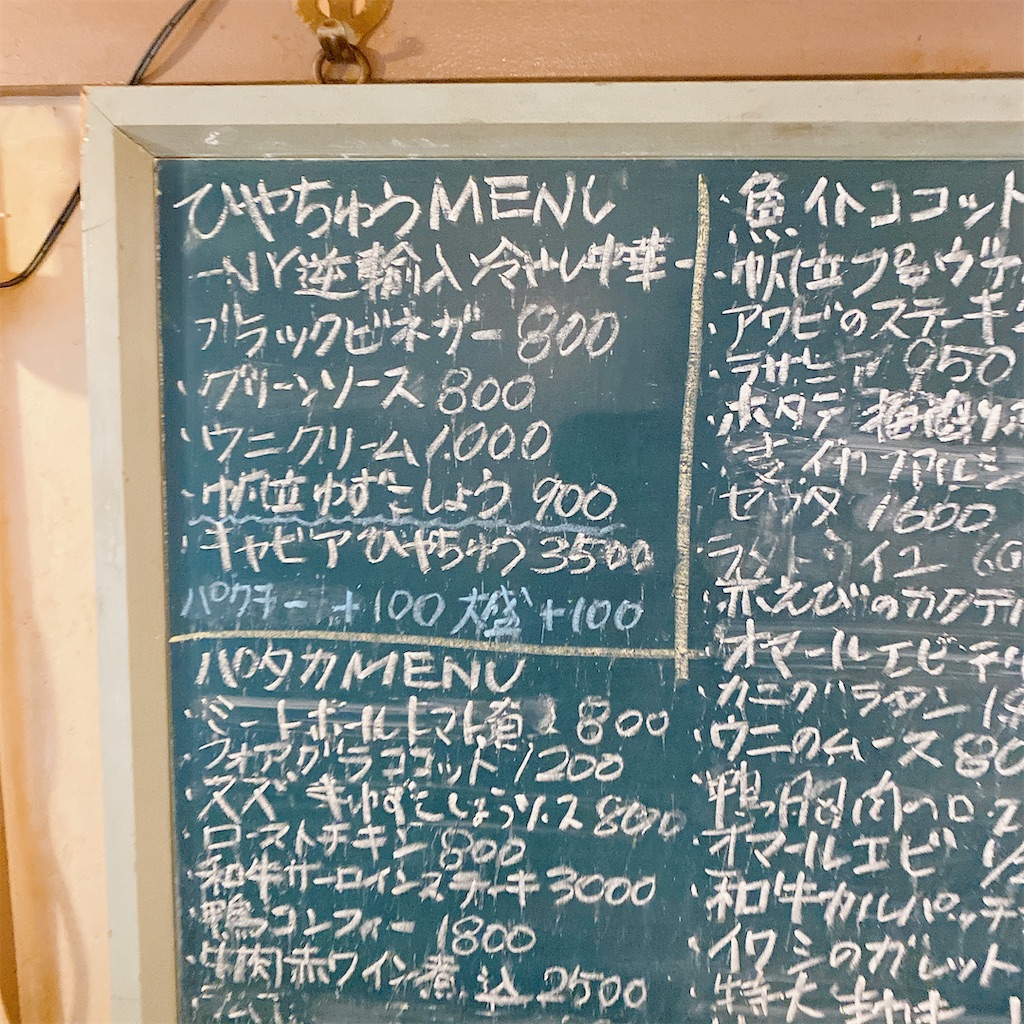 ひやちゅうMENU
-NY逆輸入冷やし中華-
ブラックビネガー 800
・グリーンソース 800
・ウニクリーム 1.000
・帆立ゆずこしょう 900
・キャビアひやちゅう 3500
パクチー +100 大盛 +100
パタカMENU
・ミートボールトマト煮 800
・フォアグラココット 1200
・スズキゆずこしょうソース 800
・ローストチキン 800
・和牛サーロインステーキ 3000
・鴨コンフィー 1800
・牛肉赤ワイン煮込 2500
・魚介ココット
・帆立プロヴァ
・アワビのステーキ
・ラザニア 950
・ホタテ
セップタ 1600
・ラタトゥイユ
・赤えびのカクテル
・オマールエビテリ
・カニグラタン
・ウニのムース 80
・鴨胸肉のロ
・オマールエビ
・和牛カルパッチ
・イワシのガレット
・特大